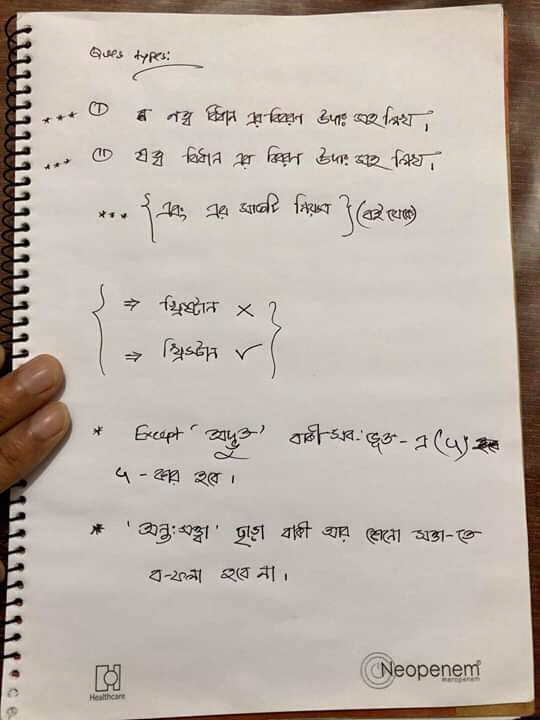 Ques types:
*** ① ণত্ব বিধান এর বিবরণ উদাঃ সহ লিখ,
*** ② ষত্ব বিধান এর বিবরণ উদাঃ সহ লিখ,
*** { এবং এর সাতটি নিয়ম } (বই থেকে)
⇒ খ্রিষ্টান ×
⇒ খ্রিস্টান ✓
* Except 'অদ্ভুত' বাকী সব: ভূত - এ (ূ)
ূ - কার হবে।
* 'অন্তঃসত্ত্বা' ছাড়া বাকী আর কোনো সত্তা-তে
ব-ফলা হবে না।
Healthcare
Neopenem
meropenem